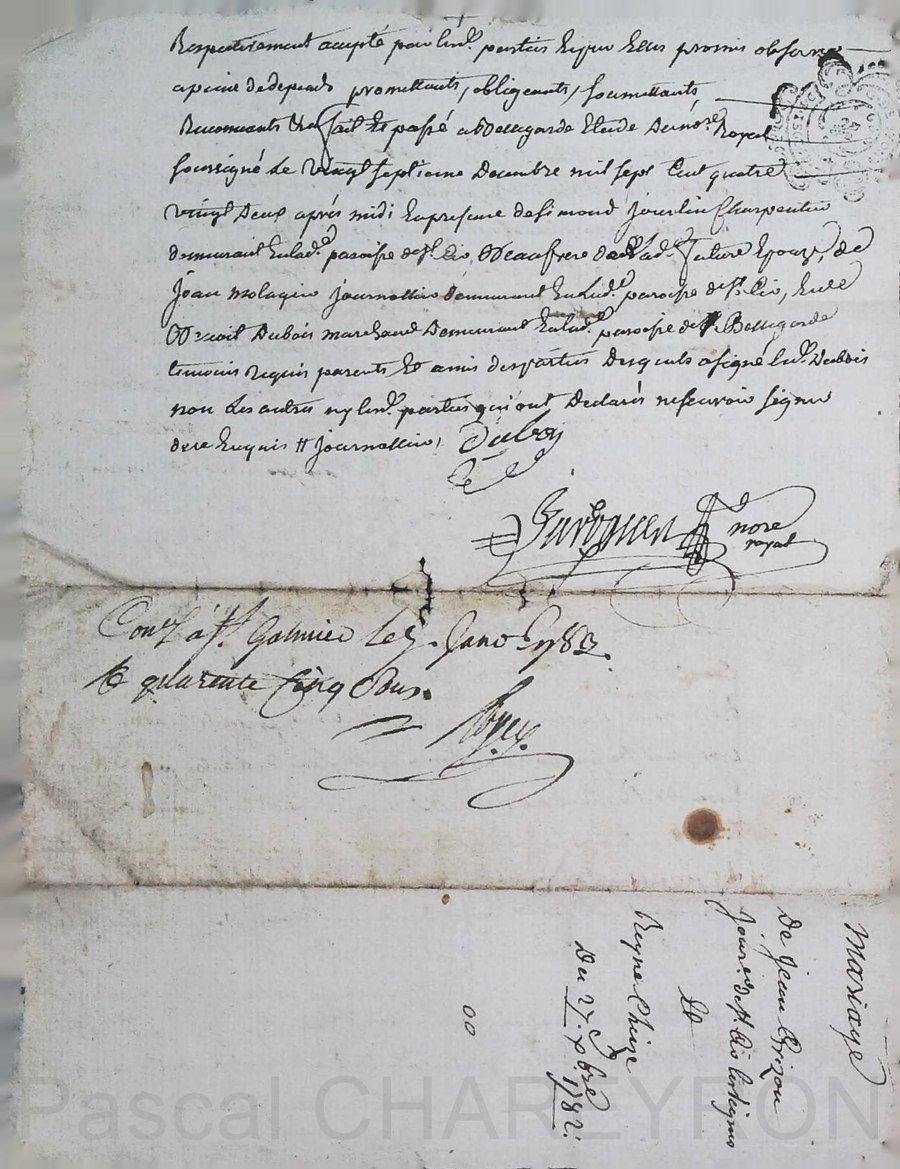 Respectivement accepté par lesd. parties Lizeu Elus promis observer
a peine de depends promettants, obligeants, soumettants,
Renonceants &ra fait et passé a Bellegarde Etude du nore. Royal
soussigné Le vingt septieme Decembre mil sept Cent quatre
vingt Deux après midi En presence de Simond Jourlin Charpentier
demeurant Enlad. paroisse de St. Cir, Beaufrere de Lad. future Epouze, de
Jean Molaguin journallier demeurant Enlad. paroisse de St. Cir, Eude
Benoit Dubois marchand Demeurant Enlad. paroisse de Bellegarde
temoins requis parents Et amis desparties Desquels a signé led. Dubois
non Les autres ny lesd. parties qui ont Declarés ne scavoir signer
dece Enquis # journallier,
Duboy
nore
royal
Con.lé à St. Galmier Le 7. Janv. 1783.
R quarente Cinq Sous.
Mariage
De Jean Grizon
Journ. de St. Cir les vignes
Et
Reyne Chize
Du 27. Xbre 1782.
00
Pascal CHAREYRON